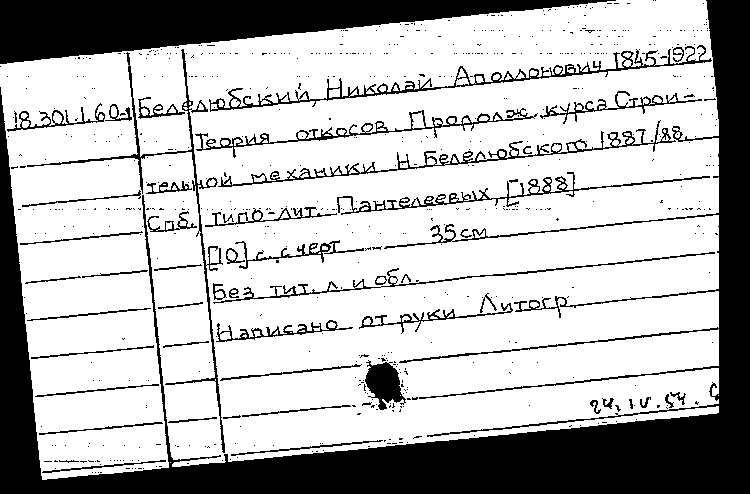 18.301.1.60-1 Белелюбский, Николай Аполлонович, 1845-1922
Теория откосов. Продолж. курса Строи-
тельной механики Н. Белелюбского 1887/88.
Спб. типо-лит. Пантелеевых, [1888]
[10] с. с черт 35 см
Без тит. л. и обл.
Написано от руки Литогр.
24.IV.54.